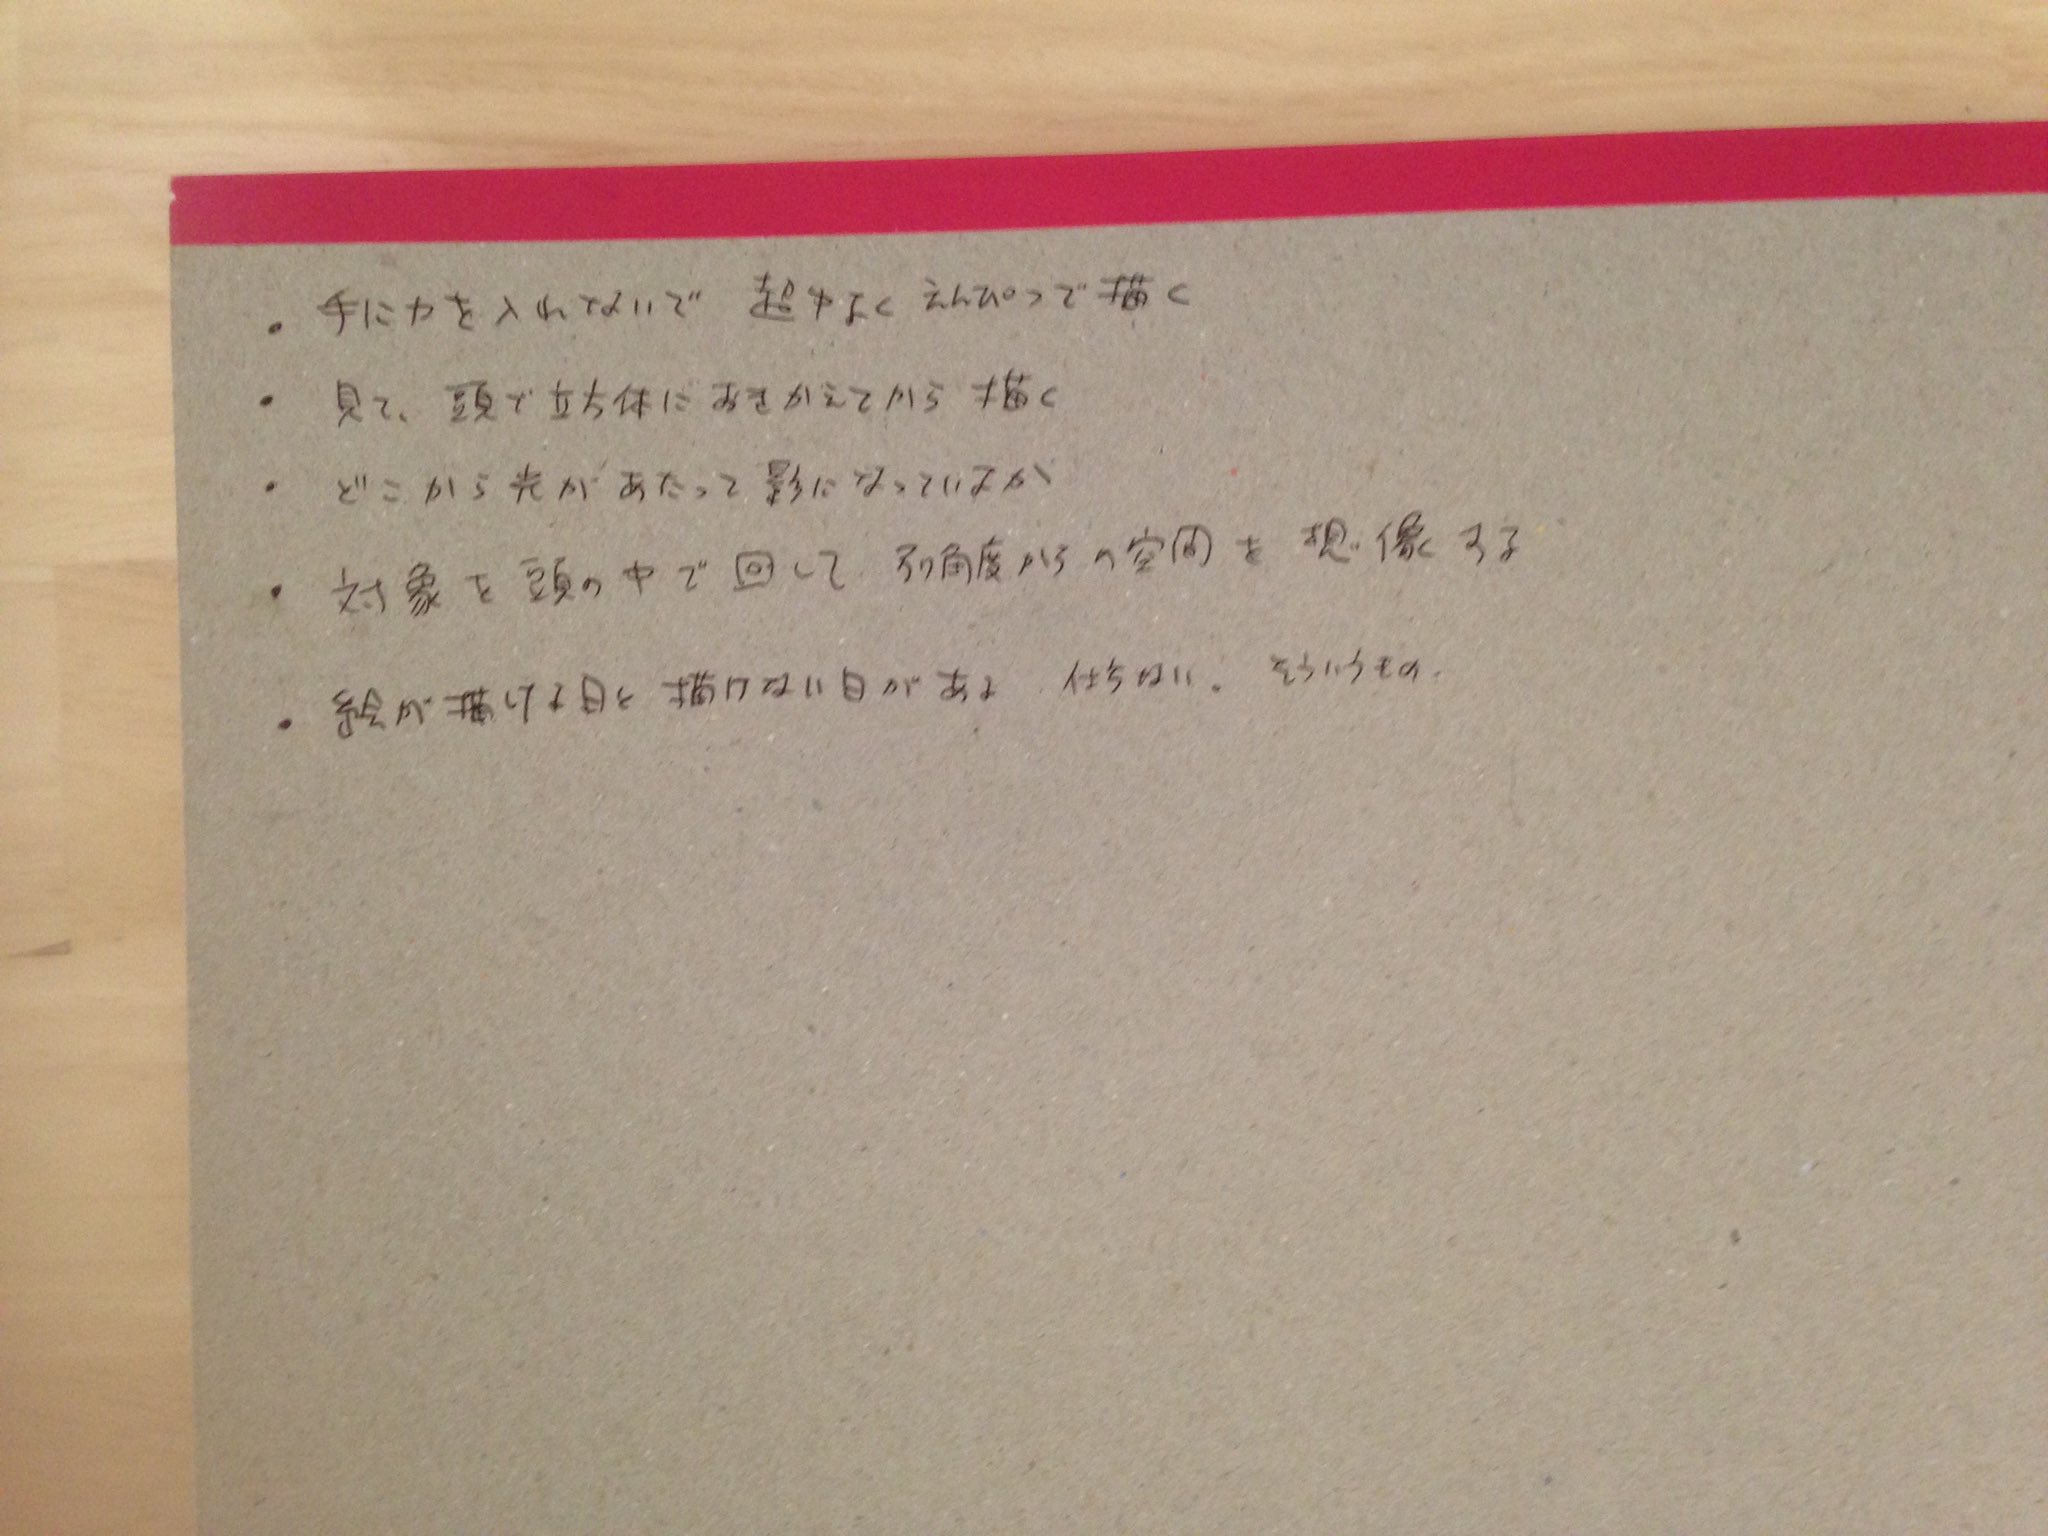 ・手に力を入れないで 超やよく えんぴつで描く
・見て、頭で立ち体におきかえてから 描く
・どこから光があたって影になっているか
・対象を頭の中で回して 別角度からの空間を想像する
・絵が描ける日と描けない日がある 仕ちない。 そういうもの.